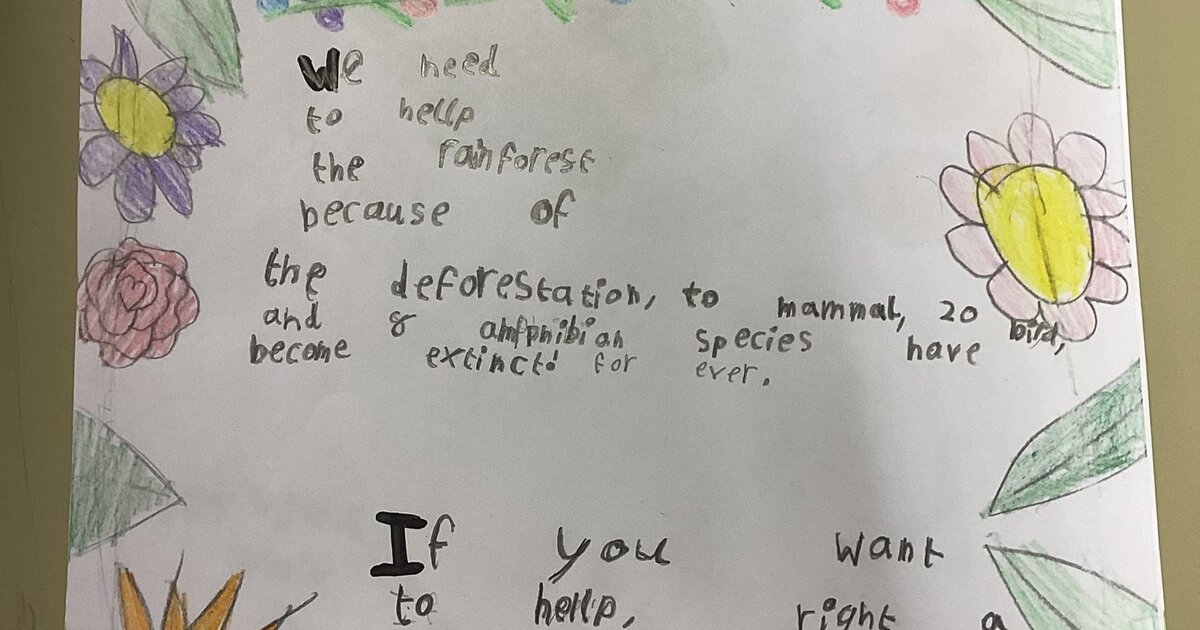 We need
to hellp
the rainforest
because of
the deforestation, to mammal, 20 bird,
and 8 amfphibian species have
become extinct! for ever.
If you want
to hellp, right a